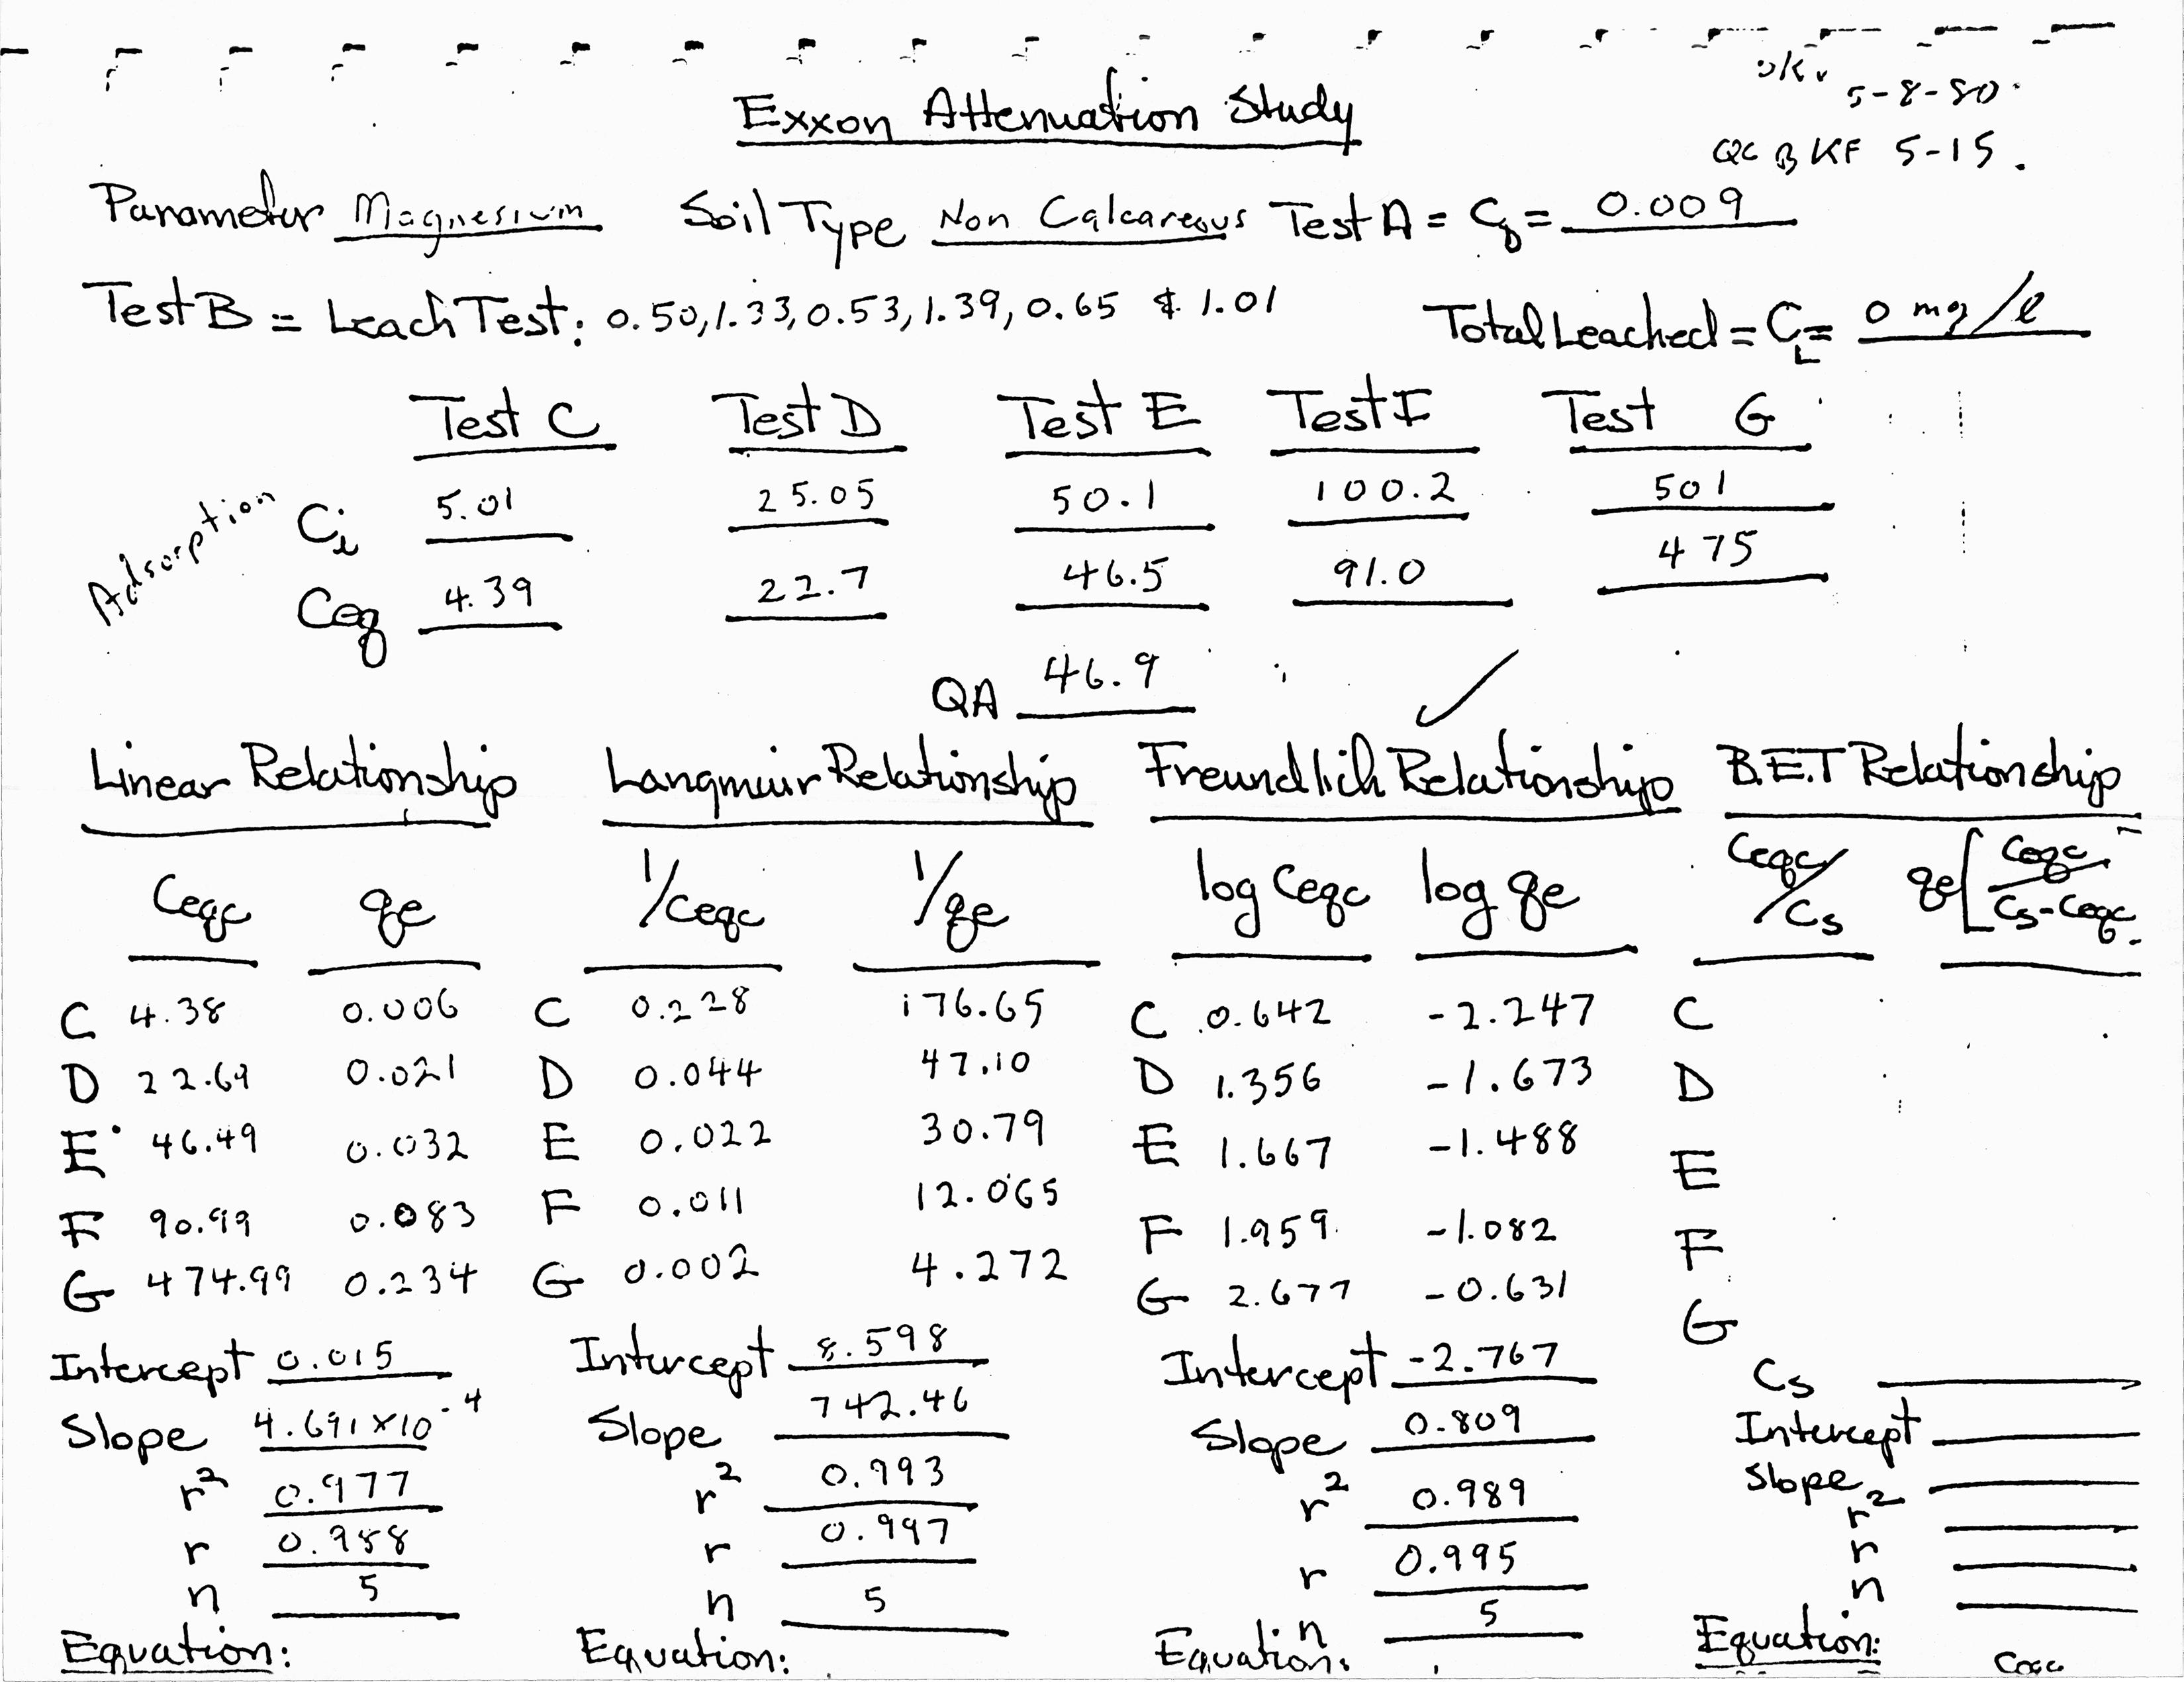 OK
5-8-80
Exxon Attenuation Study
QC B KF 5-15.
Parameter Magnesium Soil Type Non Calcareous Test A = Cb = 0.009
Test B = Leach Test: 0.50, 1.33, 0.53, 1.39, 0.65 & 1.01 Total Leached = CL = 0 mg/l
Test C Test D Test E Test F Test G
Adsorption
Ci 5.01 25.05 50.1 100.2 501
Ceq 4.39 22.7 46.5 91.0 475
QA 46.9 ✓
Linear Relationship Langmuir Relationship Freundlich Relationship B.E.T Relationship
Ceqc qe 1/Ceqc 1/qe log Ceqc log qe Ceqc/Cs qe[Ceqc/Cs-Ceqc
C 4.38 0.006 C 0.228 176.65 C 0.642 -2.247 C
D 22.69 0.021 D 0.044 47.10 D 1.356 -1.673 D
E 46.49 0.032 E 0.022 30.79 E 1.667 -1.488 E
F 90.99 0.083 F 0.011 12.065 F 1.959 -1.082 F
G 474.99 0.234 G 0.002 4.272 G 2.677 -0.631 G
Intercept 0.015 Intercept 8.598 Intercept -2.767 Cs
Slope 4.691x10-4 Slope 742.46 Slope 0.809 Intercept
r2 0.977 r2 0.993 r2 0.989 Slope
r 0.988 r 0.997 r 0.995 r2
n 5 n 5 n 5 r
n
Equation: Equation: Equation: Equation:
Ceqc